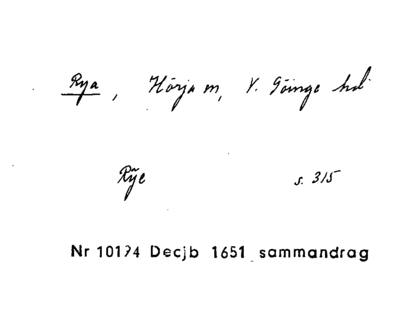 Rya, Hörja sn, V. Göinge hd
Rÿe s. 315
Nr 10174 Decjb 1651 sammandrag